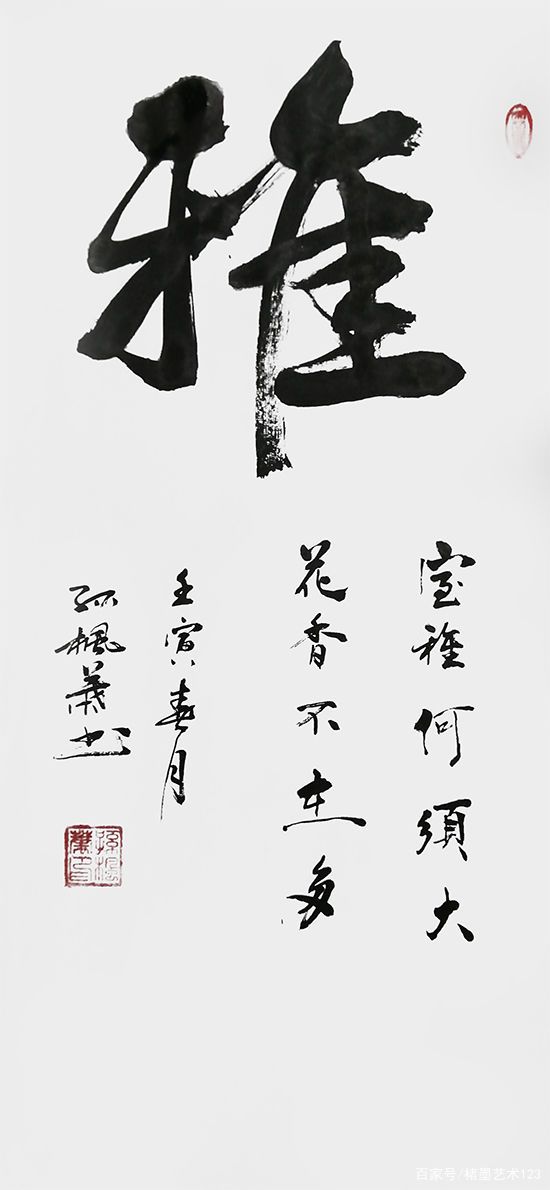 雅
室雅何须大
花香不在多
壬寅春月
孤枫叶书
百家号/楮墨艺术123